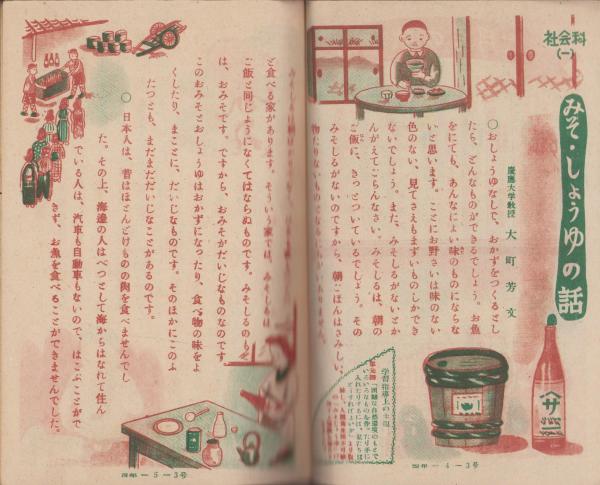 社会科
(一)
みそ・しょうゆの話
慶應大学教授 大町芳文
○おしょうゆなしで、おかずをつくるとし
たら、どんなものができるでしょう。お魚
をにても、あんなによい味のものにならな
いと思います。ことにお野さいは味のない
色のない、見てさえもまずいものしかでき
ないでしょう。また、みそしるがないとか
んがえてごらんなさい。みそしるは、朝の
ご飯に、きっとついているでしょう。その
みそしるがないのですから、朝ごはんはさみしい、
学習指導上の主眼
サ
四年 — 4 — 3号
ど食べる家があります。そういう家では、みそしるは
ご飯と同じようになくてはならぬものです。みそしるのも
は、おみそです。ですから、おみそがだいじなものなのです。
このおみそとおしょうゆはおかずになったり、食べ物の味をよ
くしたり、まことに、だいじなものです。そのほかにこのふ
たつとも、まだまだだいじなことがあるのです。
○日本人は、昔はほとんどけものの肉を食べませんでし
た。その上、海邊の人はべつとして海からはなれて住ん
でいる人は、汽車も自動車もないので、はこぶことがで
きず、お魚を食べることができませんでした。
四年 — 5 — 3号